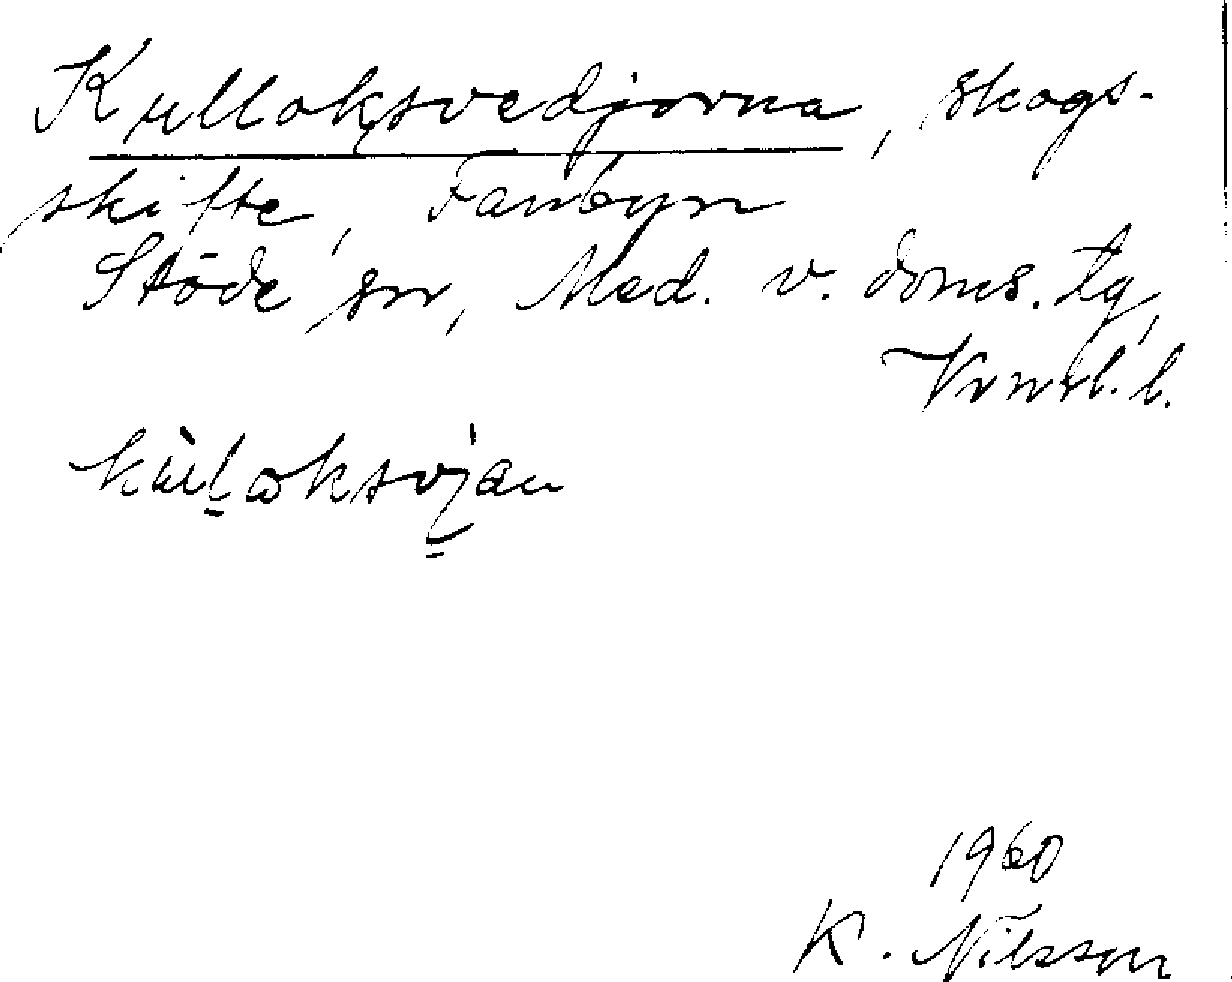 Kulloksvedjorna, skogs-
skifte, Fanbyn
Stöde sn, Med. v. doms. tg,
Vrnrl. l.
1960
K. Nilsson